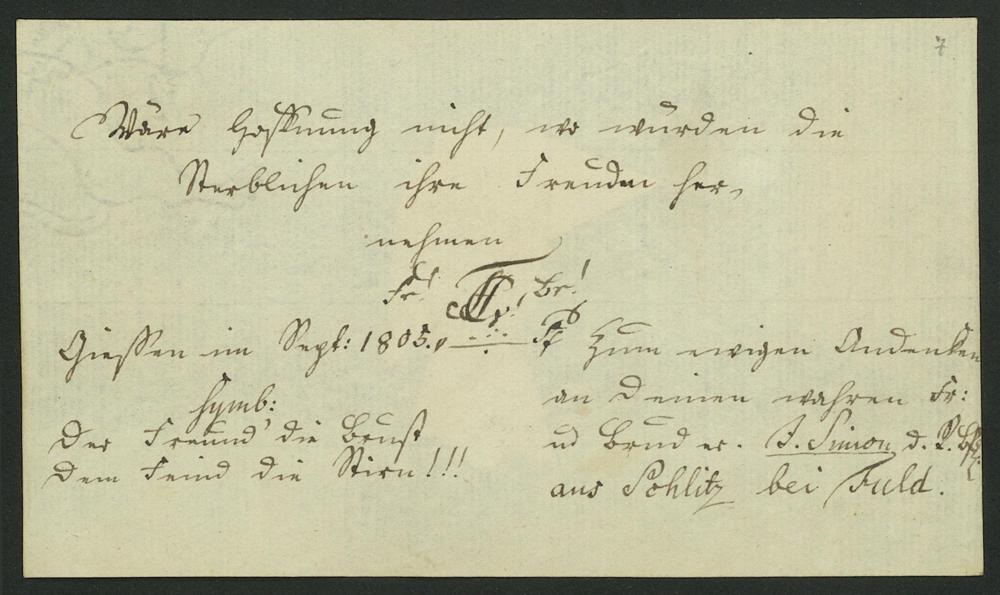 7
Wäre Hoffnung nicht, wo würden die
Sterblichen ihre Freuden her-
nehmen
Fr! Br!
Giessen im Sept: 1805.
Symb:
Der Freund die Brust
dem Feind die Stirn!!!
Zum ewigen Andenken
an Deinen wahren Fr:
ud Bruder. J. Simon, d. R. Bfl:
aus Schlitz bei Fuld.